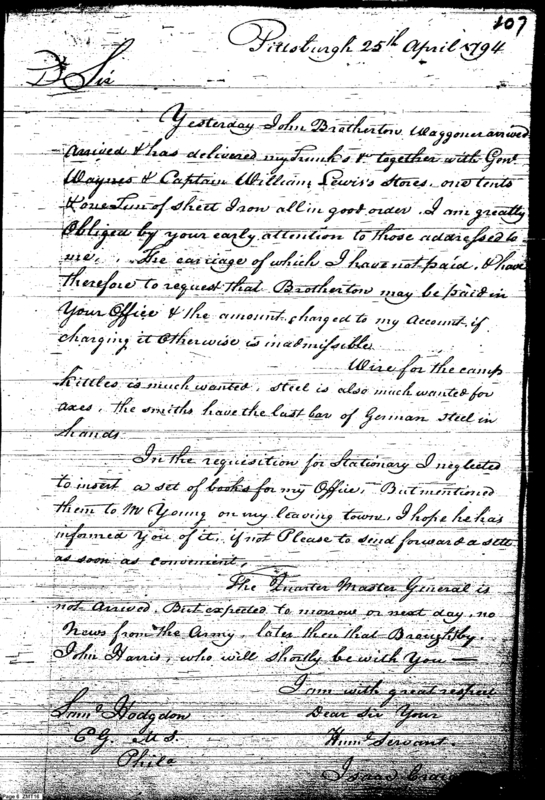 107
Pittsburgh 25th April 1794
Dr Sir
Yesterday John Brotherton Waggoner arrived
arrived & has delivered my Trunks & together with Genl
Waynes & Captain William Lewis's Stores, one tents
& one Tun of Sheet Iron all in good order. I am greatly
Obliged by your early attention to those addressed to
me, The carriage of which I have not paid, & have
therefore to request that Brotherton may be paid in
Your Office & the amount charged to my Account, if
charging it Otherwise is inadmissible.
Wire for the camp
Kittles is much wanted, steel is also much wanted for
axes, the smiths have the last bar of German steel in
hands
In the requisition for Stationary I neglected
to insert a set of books for my Office, But mentioned
them to Mr Young on my leaving town, I hope he has
informed You of it, if not Please to send forward a sett
as soon as convenient,
The Quarter Master General is
not Arrived, But expected to morrow or next day, no
News from the Army, later then that Braught by
John Harris, who will shortly be with You
I am with great respect
Saml Hodgdon Dear Sir Your
Humle Servant.
Phila
Isaac Craig